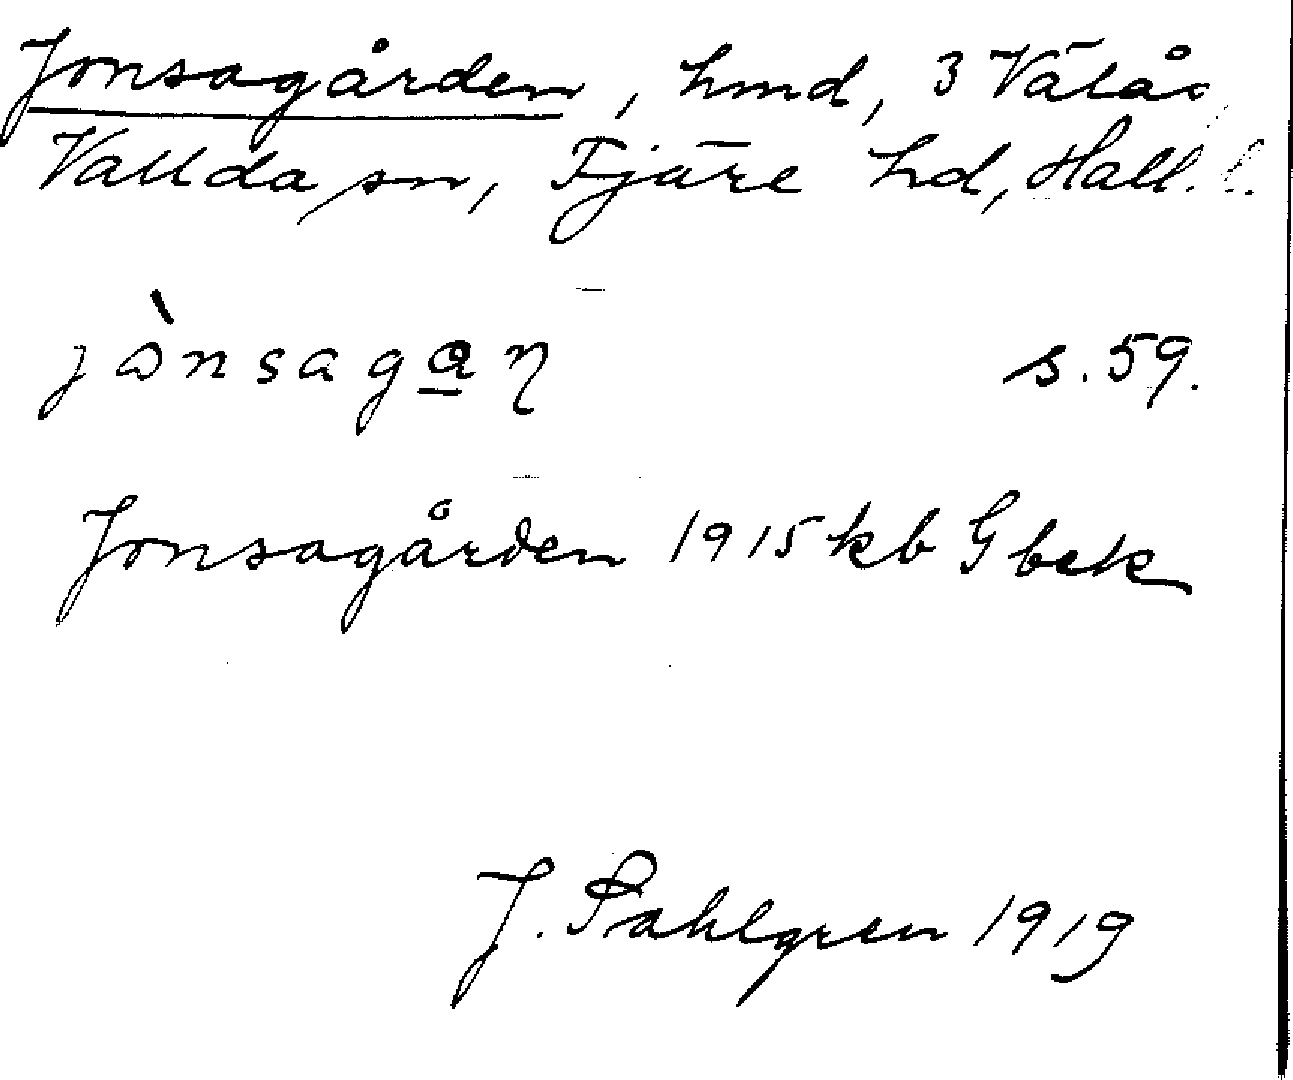 Jonsagården, hmd, 3 Välås
Vallda sn, Fjäre hd, Hall. l.
jònsagan s. 59.
Jonsagården 1915 kb G bek
J. Sahlgren 1919